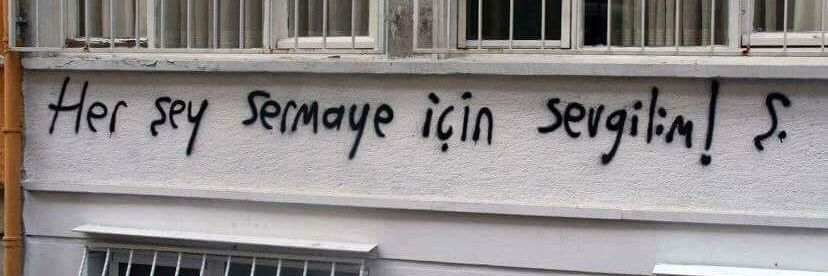 Her şey sermaye için sevgilim! Ş.